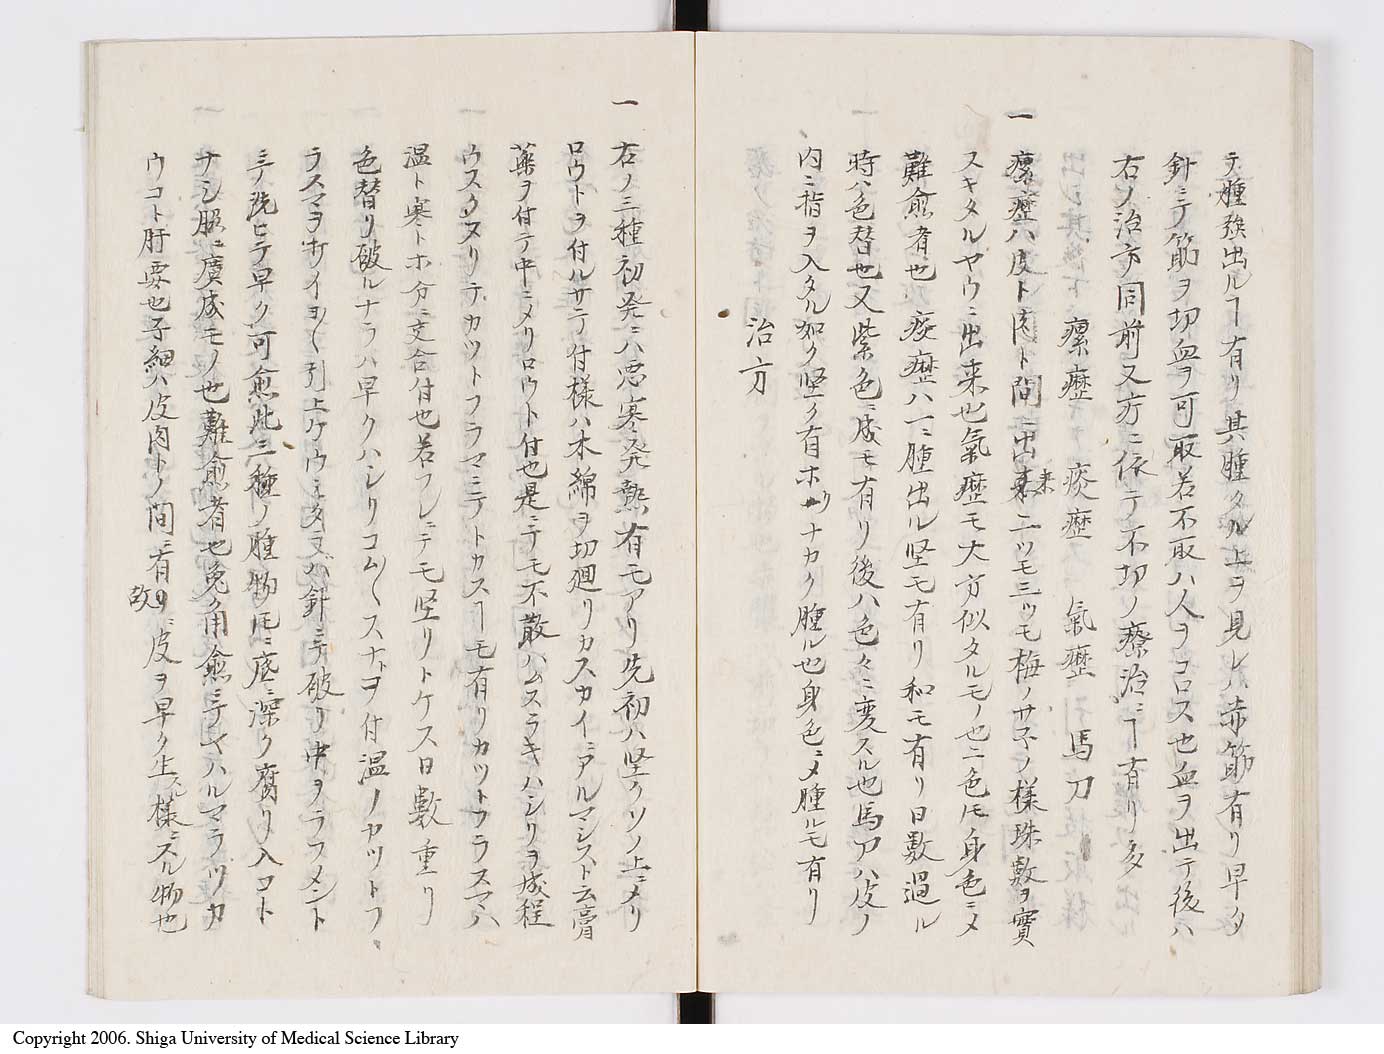 テ腫強出ルヿ有リ其腫タル上ヲ見レハ赤筋有リ早ク
針ニテ筋ヲ切血ヲ可取若不取ハ人ヲコロス也血ヲ出テ後ハ
右ノ治方同前又方ニ依テ不切ノ療治ニヿ有リ多
瘰癧 痰癧 氣癧 馬刀
一 瘰癧ハ皮ト肉ト間ニ出来二ツモ三ツモ梅ノサネノ様珠數ヲ貫
スキタルヤウニ出来也氣癧モ大方似タルモノ也二色ㇳモ身色ニメ
難愈者也痰癧ハ一ニ腫出ル坚モ有リ和モ有リ日數過ル
時ハ色替也又紫色ニ成モ有リ後ハ色々ニ変スル也馬刀ハ皮ノ
内ニ指ヲ入タル如ク坚ク有ホソリナカク腫ル也身色ニメ腫ルモ有リ
治方
一 右ノ三種初発ニハ悪寒発熱有モアリ先初ハ坚クソノ上ニメリ
ロウトヲ付ルサテ付様ハ木綿ヲ切廻リカスカイニアルマシストニ云膏
薬ヲ付テ中ニメリロウト付也是ニテモ不散ハムスラキハシリヲ成程
ウスクヌリテカツトフラマニテトカスヿモ有リカツトウラスマハ
温ト寒トホ分ニ交合付也若フレニテモ坚リトケス日數重リ
色替リ破ルナラハ早クハシリコム〱スナヲ付温ノヤツトフ
ラスマヲ引イヨ〱引上ケウミタヌハ針ニテ破リ中ヲラフメント
ミテ洗ヒテ早ク可愈此三種ノ腫物ㇳモニ底ニ深ク腐リ入コト
ナシ服ニ廣成モノ也難愈者也兔ク用愈ニテヤハルマラツカ
ウコト肝要也子細ハ皮肉トノ間ニ有故ニ皮ヲ早ク生スル様ニスル物也
Copyright 2006. Shiga University of Medical Science Library